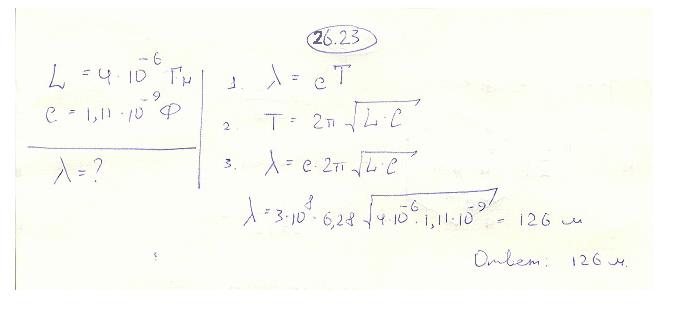 26.23
L = 4·10⁻⁶ Гн
C = 1,11·10⁻⁹ Ф
λ = ?
1. λ = cT
2. T = 2π √L·C
3. λ = c·2π √L·C
λ = 3·10⁸ · 6,28 √4·10⁻⁶·1,11·10⁻⁹ = 126 м
Ответ: 126 м.